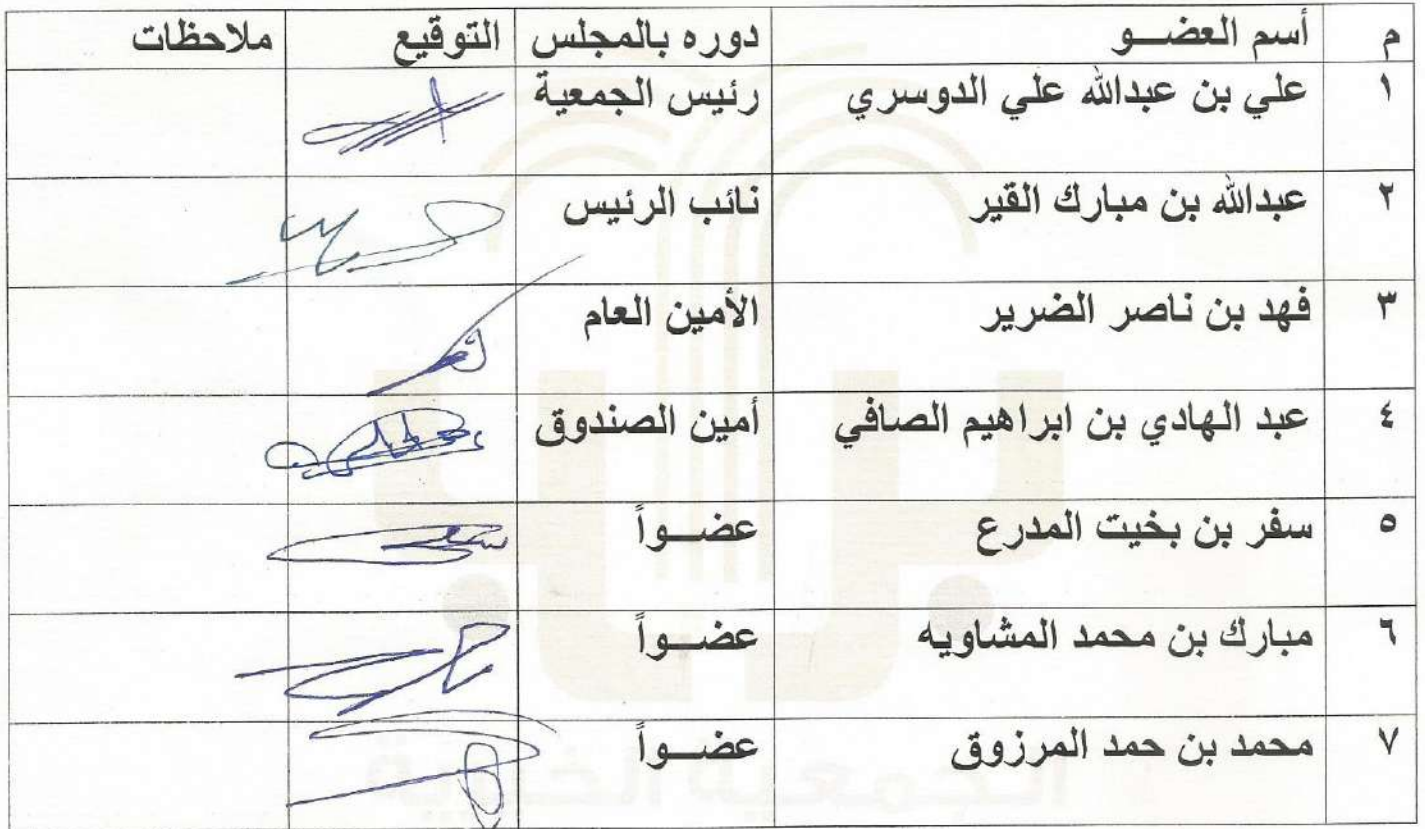 م أسم العضـــو دوره بالمجلس التوقيع ملاحظات
١ علي بن عبدالله علي الدوسري رئيس الجمعية
٢ عبدالله بن مبارك القير نائب الرئيس
٣ فهد بن ناصر الضرير الأمين العام
٤ عبد الهادي بن ابراهيم الصافي أمين الصندوق
٥ سفر بن بخيت المدرع عضـــواً
٦ مبارك بن محمد المشاويه عضـــواً
٧ محمد بن حمد المرزوق عضـــواً
الجمعية الخيرية